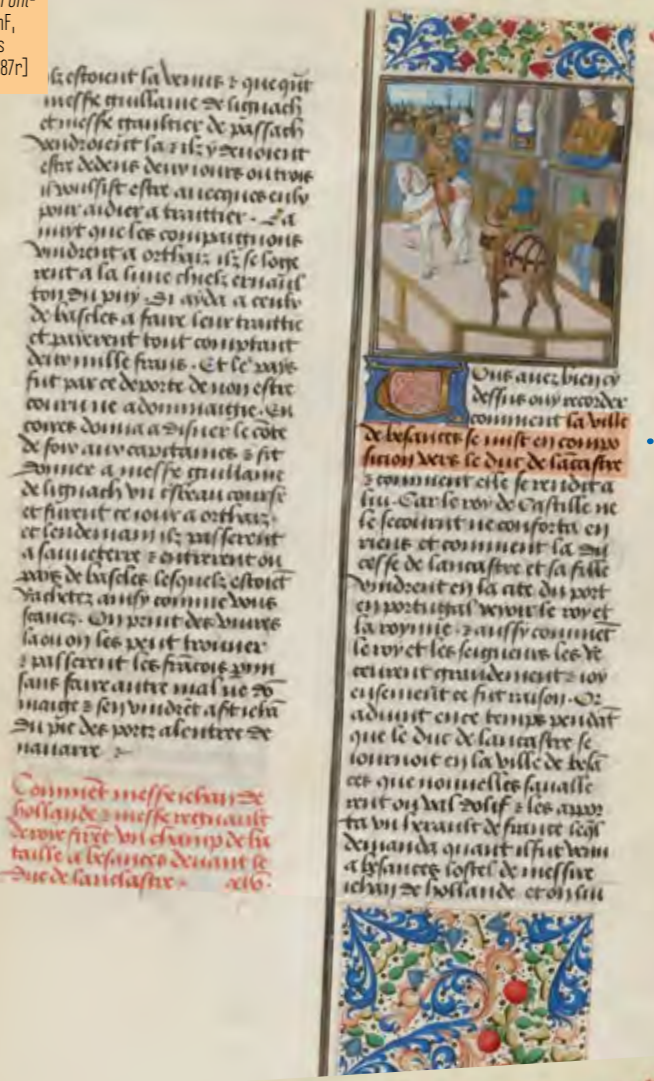 nF,
87r]
lz estoient la venus & que qnt
messe guillame de lignach
et messe gaultier de passach
vendroient la & ilz y devoient
estre dedens deux iours ou trois
il voulsist estre avecques eulx
pour aidier a traittier. La
nuyt que les compaignons
vindrent a orthaiz ilz se loge
rent a la lune chielz ernaul
ton du puy. Si ayda a ceulx
de bascles a faire leur traittie
et paierent tout comptant
deux mille frans. Et le pays
fut par ce deporte de non estre
couru ne adommaigie. En
cores donna a disner le cote
de foix aux capitaines & fit
donner a messe guillame
de lignach un coursie
et furent ce iour a orthaiz.
et lendemain ilz passerent
a sauveterre & entrerent ou
pays de bascles lesquelz estoiet
rachetez ainsy comme vous
scavez. On print des vivres
la ou on les peut trouver
& passerent les francois
sans faire autre mal ne do
maige & sen vindret a st iehan
du pie des portz a lentree de
navarre
Comment messe iehan de
hollande & messe regnault
de roye firet un champ de ba
taille a besances devant le
duc de lanclastre. xiiij.
Vous avez bien cy
dessus ouy recorder
comment la ville
de besances se mist en compo
sicion vers le duc de lacastre
& comment elle se rendit a
luy. Car le roy de Castille ne
le secourut ne conforta en
riens et comment la du
cesse de lancastre et sa fille
vindrent en la cite du port
en portugal veoir le roy et
la royne. & aussy commet
le roy et les seigneurs les re
ceurent grandement & ioy
eusement ce fut raison. Or
advint en ce temps pendat
que le duc de lancastre se
iournoit en la ville de besa
ces que nouvelles savalle
rent ou val dolif & les appor
ta un herault de france leql
demanda quant il fut venu
a besances lostel de messire
iehan de hollande. et on luy